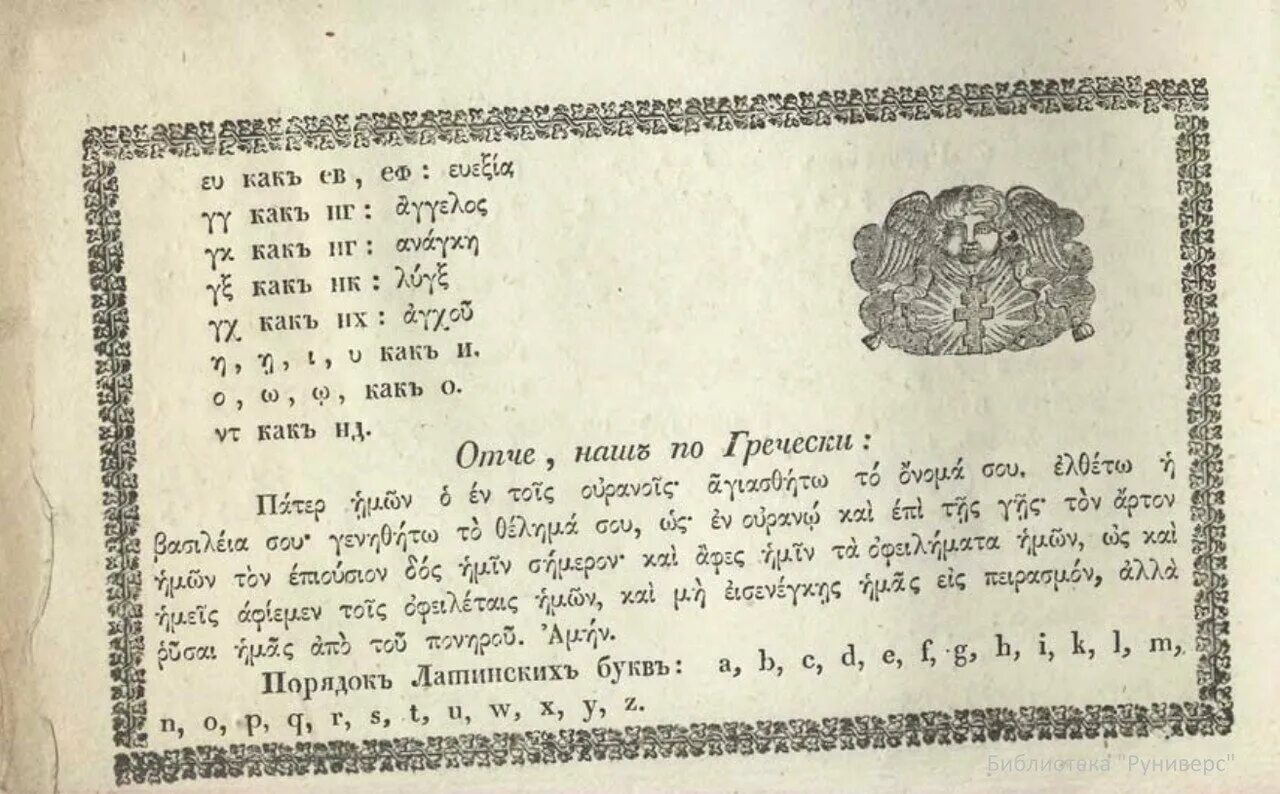 ευ какъ ев, еф: ευεξία
γγ какъ нг: ἄγγελος
γκ какъ нг: ανάγκη
γξ какъ нк: λύγξ
γχ какъ нх: ἀγχοῦ
η, ῃ, ι, υ какъ и.
ο, ω, ῳ, какъ о.
ντ какъ нд.
Отче, нашъ по Гречески:
Πάτερ ἡμῶν ὁ ἐν τοῖς οὐρανοῖς· ἁγιασθήτω τό ὄνομά σου. ἐλθέτω ἡ
βασιλεία σου· γενηθήτω τὸ θέλημά σου, ὡς· ἐν οὐρανῷ καὶ ἐπὶ τῆς γῆς· τὸν ἄρτον
ἡμῶν τὸν ἐπιούσιον δός ἡμῖν σήμερον· καὶ ἄφες ἡμῖν τὰ ὀφειλήματα ἡμῶν, ὡς καὶ
ἡμεῖς ἀφίεμεν τοῖς ὀφειλέταις ἡμῶν, καὶ μὴ εἰσενέγκῃς ἡμᾶς εἰς πειρασμόν, ἀλλὰ
ῥῦσαι ἡμᾶς ἀπὸ τοῦ πονηροῦ. Ἀμήν.
Порядокъ Латинскихъ буквъ: a, b, c, d, e, f, g, h, i, k, l, m,
n, o, p, q, r, s, t, u, w, x, y, z.
Библиотека "Руниверс"